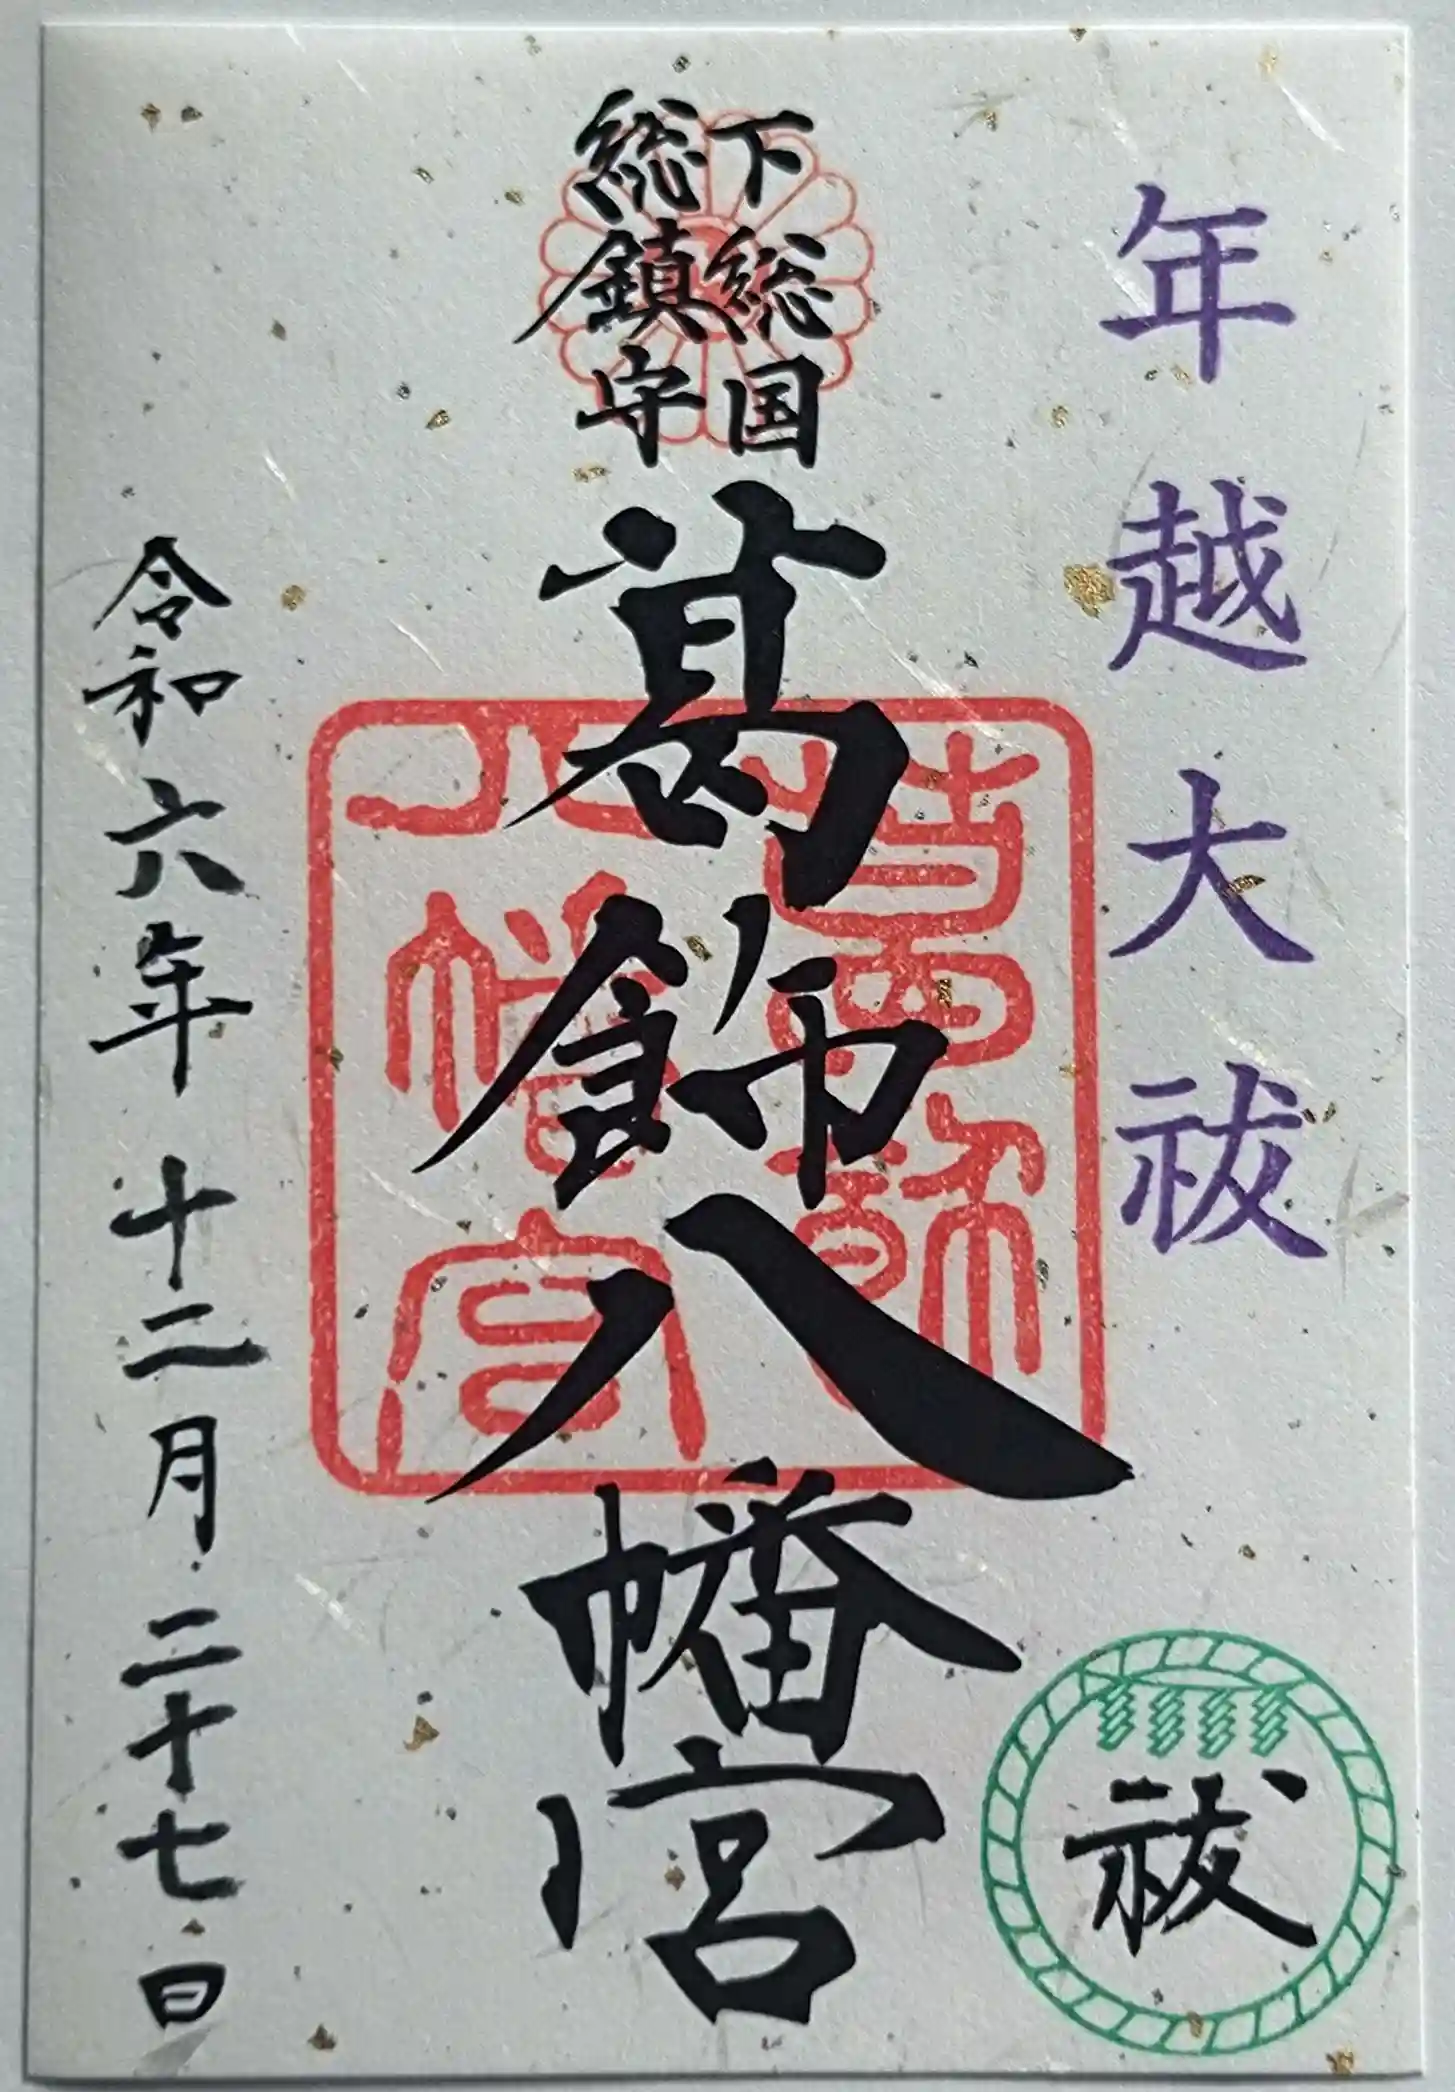 年越大祓
祓
下総国
総鎮守
葛飾八幡宮
葛飾
八幡宮
令和六年十二月二十七日